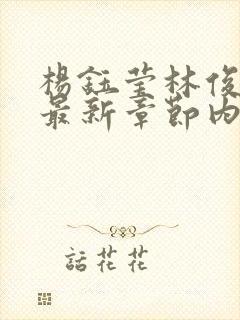 楊鈺莹林俊
最新章節內
話花花